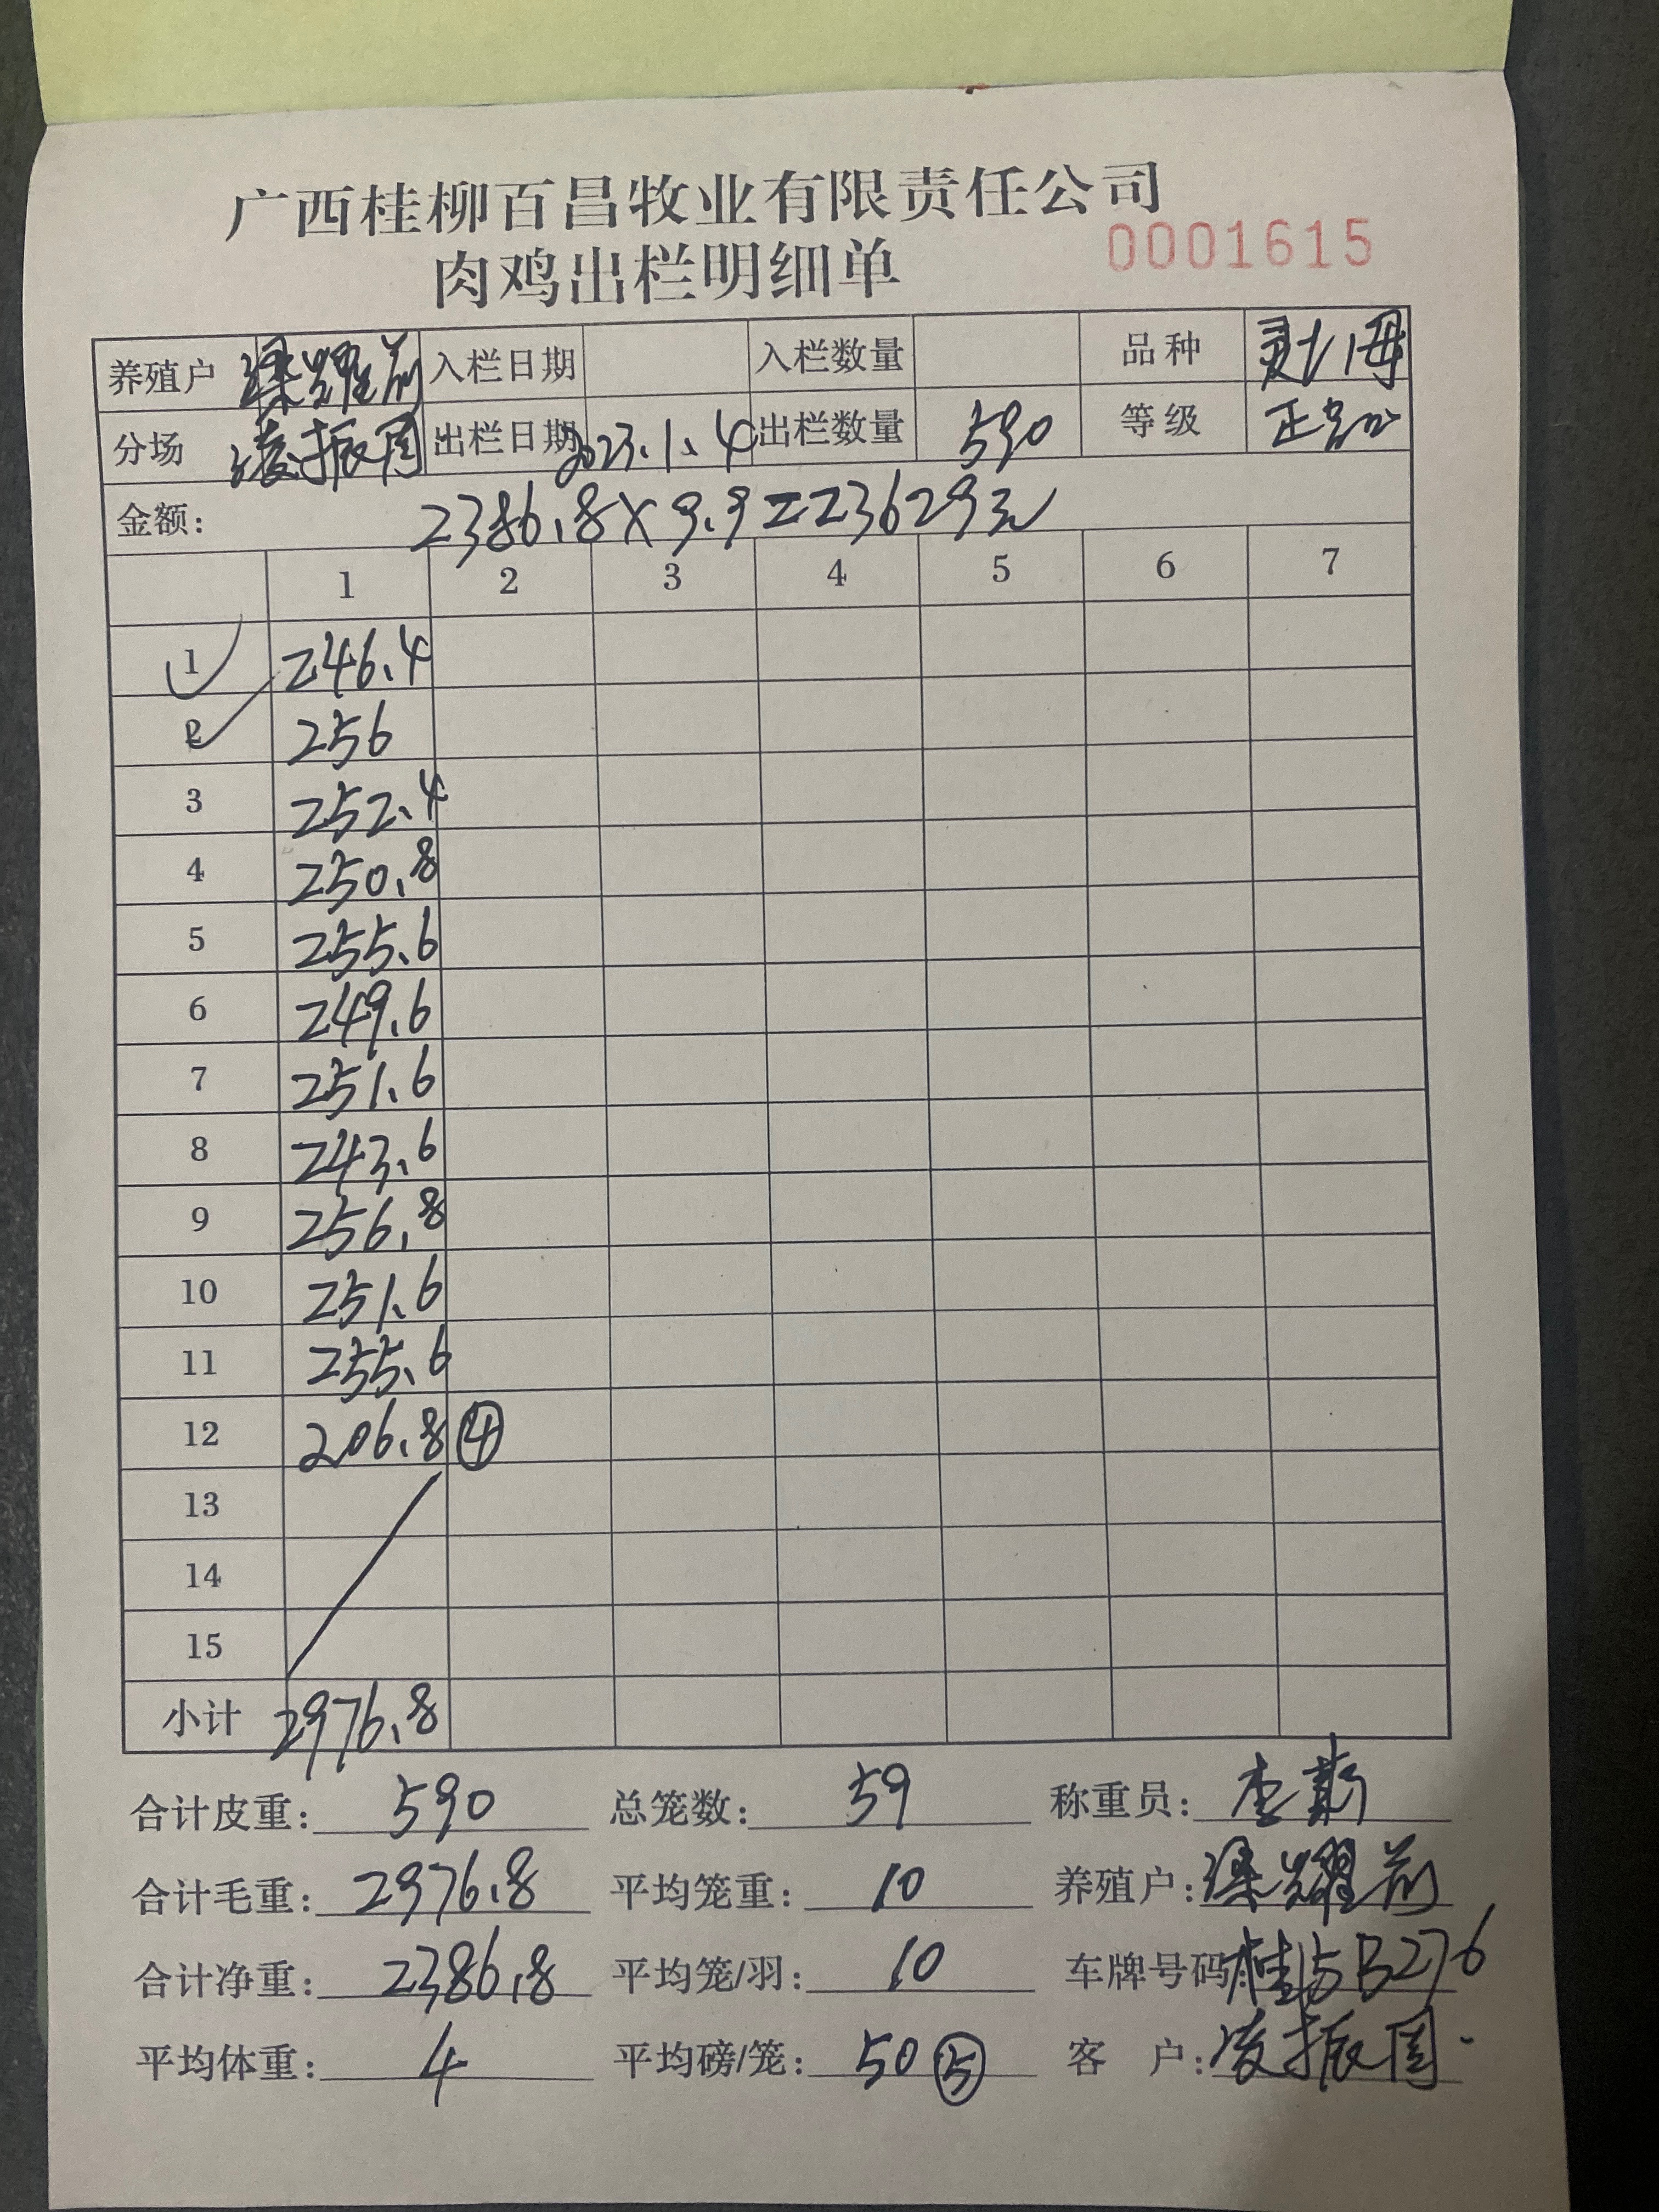 广西桂柳百昌牧业有限责任公司
肉鸡出栏明细单 0001615
养殖户 梁耀前 入栏日期 入栏数量 品种
分场 凌振周 出栏日期 2023.1.4 出栏数量 590 等级 正品
金额: 2386.8×9.9=23629元
1 2 3 4 5 6 7
1 246.4
2 256
3 252.4
4 250.8
5 255.6
6 249.6
7 251.6
8 243.6
9 256.8
10 251.6
11 255.6
12 206.8 ④
13
14
15
小计 2976.8
合计皮重: 590 总笼数: 59 称重员:
合计毛重: 2976.8 平均笼重: 10 养殖户: 梁耀前
合计净重: 2386.8 平均笼/羽: 10 车牌号码: 桂
平均体重: 4 平均磅/笼: 50 ⑤ 客 户: 凌振周